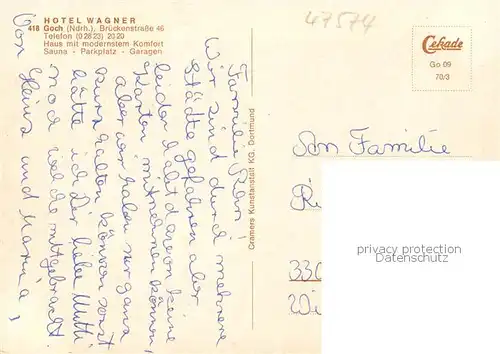 HOTEL WAGNER
418 Goch (Ndrh.), Brückenstraße 46
Telefon (02823) 2020
Haus mit modernstem Komfort
Sauna - Parkplatz - Garagen
47574
Cekade
Go 09
70/3
Familie
Wir sind durch mehrere
Städte gefahren aber
leider habt davon keine
Karten mitnehmen können,
aber wir haben nur ganz
kurz halten können sonst
hätte ich der lieben Mutti
noch welche mitgebracht.
Von Heinz und
Cramers Kunstanstalt KG, Dortmund
An Familie
330
privacy protection
Datenschutz